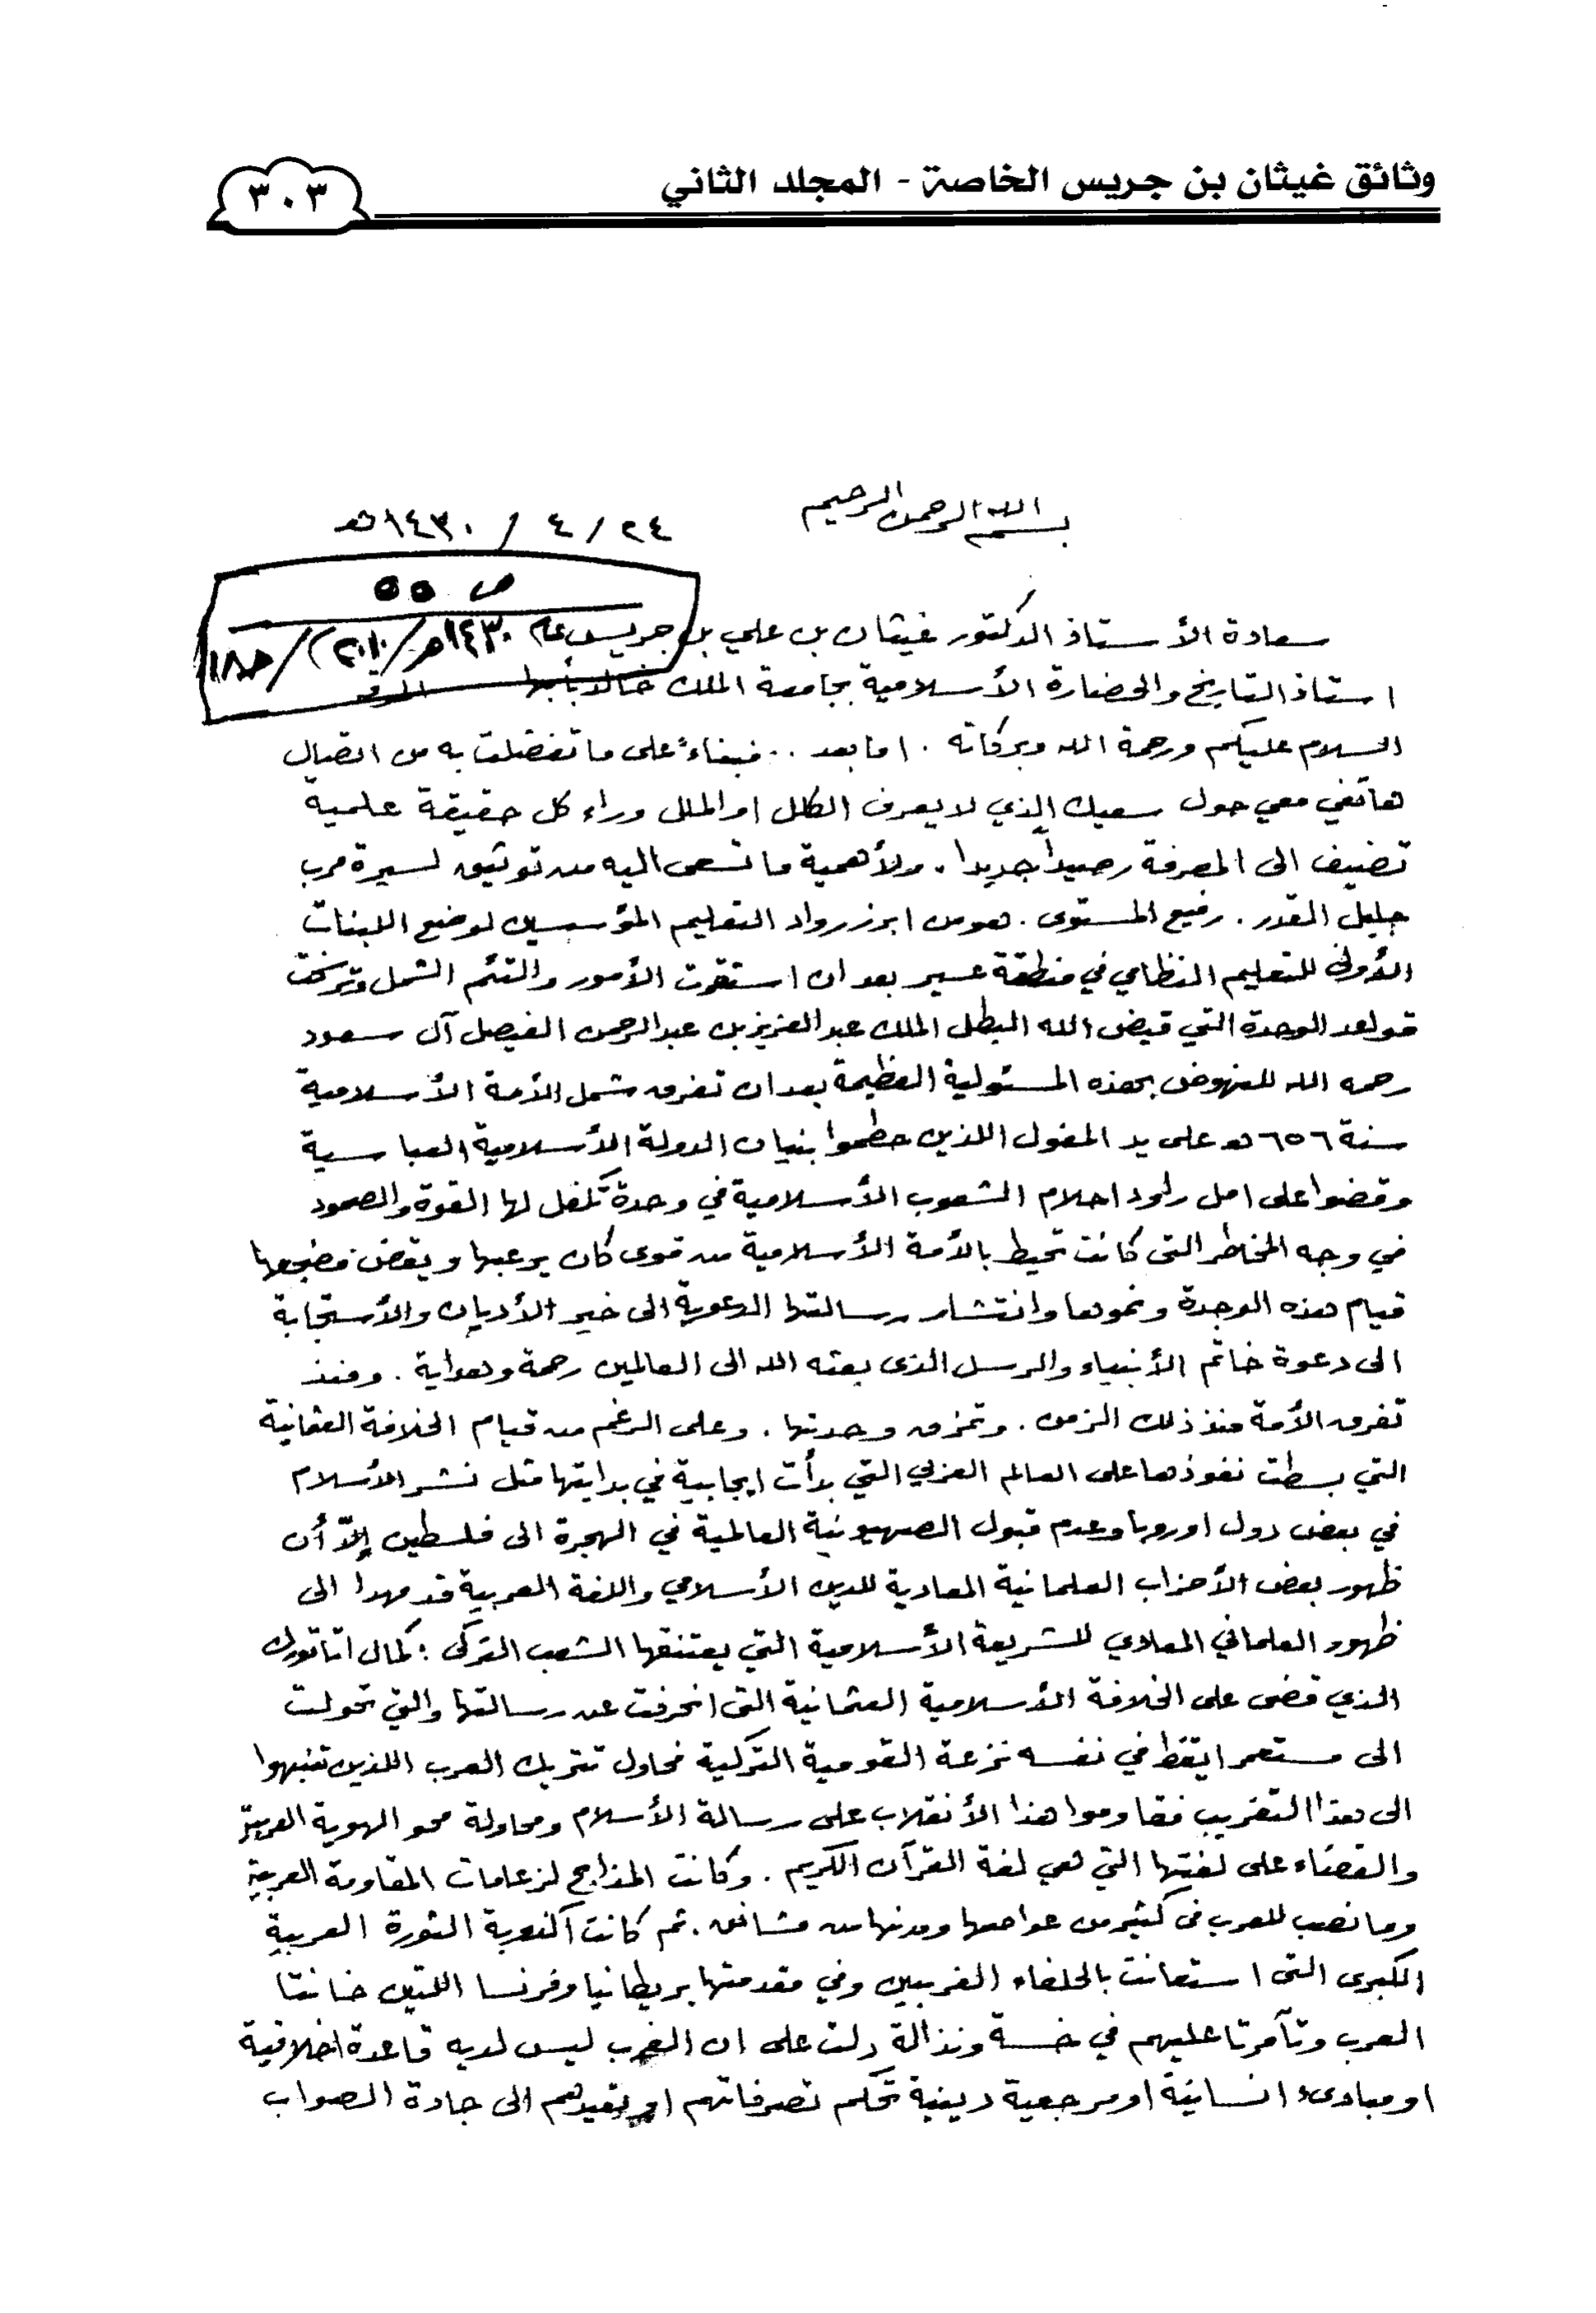 وثائق غيثان بن جريس الخاصة - المجلد الثاني
٣٠٣
بسم الله الرحمن الرحيم
٢٤ / ٤ / ١٤٣٠هـ
ص ٥٥
عام ١٤٣٠هـ/٢٠١٠)/
سعادة الأستاذ الدكتور غيثان بن علي بن جريس
استاذ التاريخ والحضارة الأسلامية بجامعة الملك خالد بأبها الموقر
السلام عليكم ورحمة الله وبركاته . اما بعد .. فبناءً على ما تفضلت به من اتصال
هاتفي معي حول سعيك الذي لا يعرف الكلل او الملل وراء كل حقيقة علمية
تضيف الى المعرفة رصيداً جديدا . ولأهمية ما تسعى اليه من توثيق لسيرة مرب
جليل القدر . رفيع المستوى . هو من ابرز رواد التعليم المؤسسين لوضع اللبنات
الأولى للتعليم النظامي في منطقة عسير بعد ان استقرت الأمور والتئم الشمل وترسخت
قواعد الوحدة التي قيض الله البطل الملك عبدالعزيز بن عبدالرحمن الفيصل آل سعود
رحمه الله للنهوض بهذه المسئولية العظيمة بعد ان تفرق شمل الأمة الأسلامية
سنة ٦٥٦ هـ على يد المغول اللذين حطموا بنيان الدولة الأسلامية العباسية
وقضوا على امل راود احلام الشعوب الأسلامية في وحدة تكفل لها القوة والصمود
في وجه المخاطر التى كانت تحيط بالأمة الأسلامية من قوى كان يرعبها ويقض مضجعها
قيام هذه الوحدة ونموها وانتشار رسالتها الدعوية الى خير الأديان والأستجابة
الى دعوة خاتم الأنبياء والرسل الذى بعثه الله الى العالمين رحمة وهداية . ومنذ
تفرق الأمة منذ ذلك الزمن . وتمزق وحدتها . وعلى الرغم من قيام الخلافة العثمانية
التي بسطت نفوذها على العالم العربي التي بدأت ايجابية في بدايتها مثل نشر الأسلام
في بعض دول اوروبا وعدم قبول الصهيونية العالمية في الهجرة الى فلسطين إلاّ أن
ظهور بعض الأحزاب العلمانية المعادية للدين الأسلامي واللغة العربية قد مهدا الى
ظهور العلماني المعادي للشريعة الأسلامية التي يعتنقها الشعب التركى : كمال اتاتورك
الذي قضى على الخلافة الأسلامية العثمانية التى انحرفت عن رسالتها والتي تحولت
الى مستعمر ايقظ في نفسه نزعة القومية التركية فحاول تتريك العرب اللذين تنبهوا
الى هذا التغريب فقاوموا هذا الأنقلاب على رسالة الأسلام ومحاولة محو الهوية العربية
والقضاء على لغتها التي هي لغة القرآن الكريم . وكانت المذابح لزعامات المقاومة العربية
وما نصب للعرب فى كثير من عواصمها ومدنها من مشانق . ثم كانت اكذوبة الثورة العربية
الكبرى التى استعانت بالحلفاء الغربيين وفي مقدمتها بريطانيا وفرنسا اللتين خانتا
العرب وتآمرتا عليهم في خسة ونذالة دلت على ان الغرب ليس لديه قاعدة اخلاقية
او مبادىء انسانية او مرجعية دينية تحكم تصرفاتهم او تقيدهم الى جادة الصواب